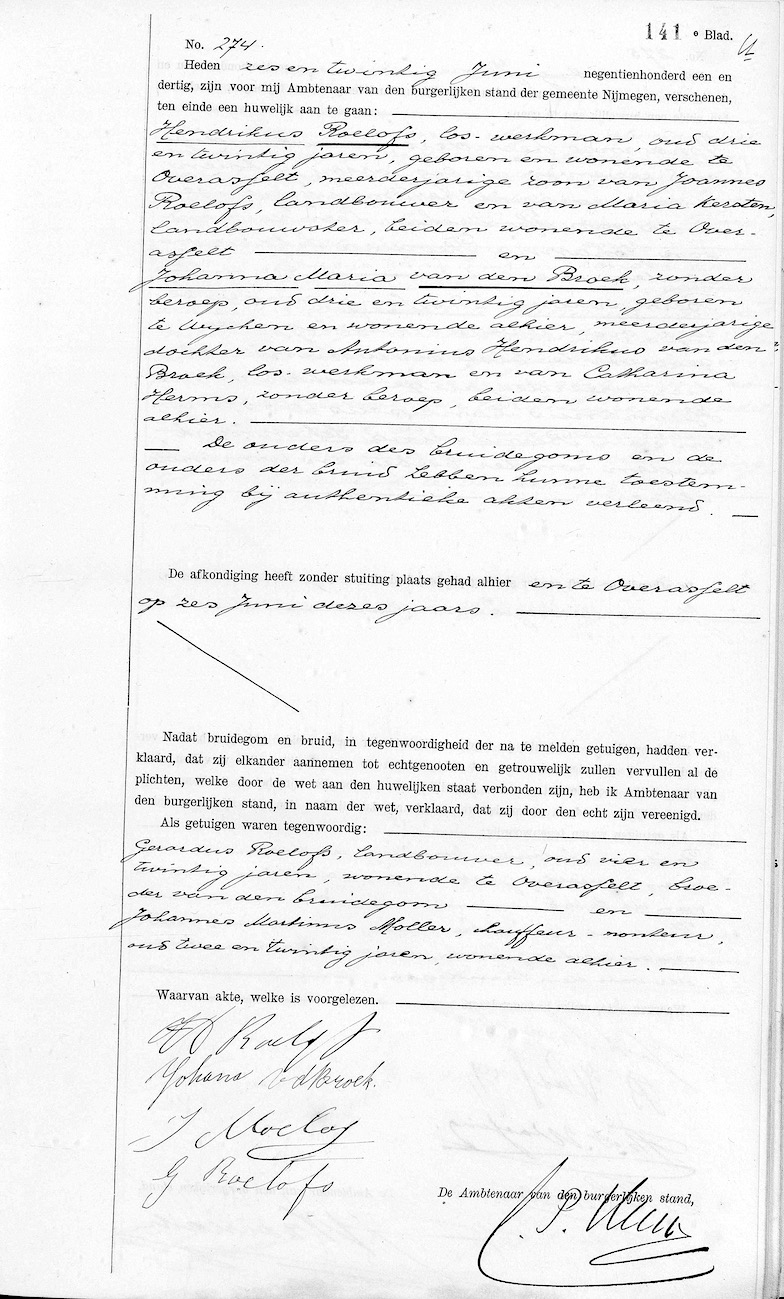 141 e Blad.
No. 274.
Heden zes en twintig Juni negentienhonderd een en
dertig, zijn voor mij Ambtenaar van den burgerlijken stand der gemeente Nijmegen, verschenen,
ten einde een huwelijk aan te gaan:
Hendrikus Roelofs, los-werkman, oud drie
en twintig jaren, geboren en wonende te
Overasselt, meerderjarige zoon van Joannes
Roelofs, landbouwer en van Maria Kersten,
landbouwster, beiden wonende te Over-
asselt en
Johanna Maria van den Broek, zonder
beroep, oud drie en twintig jaren, geboren
te Wychen en wonende alhier, meerderjarige
dochter van Antonius Hendrikus van den
Broek, los-werkman en van Catharina
Herms, zonder beroep, beiden wonende
alhier.
De ouders des bruidegoms en de
ouders der bruid hebben hunne toestem-
ming bij authentieke akten verleend.
De afkondiging heeft zonder stuiting plaats gehad alhier en te Overasselt
op zes Juni dezes jaars.
Nadat bruidegom en bruid, in tegenwoordigheid der na te melden getuigen, hadden ver-
klaard, dat zij elkander aannemen tot echtgenooten en getrouwelijk zullen vervullen al de
plichten, welke door de wet aan den huwelijken staat verbonden zijn, heb ik Ambtenaar van
den burgerlijken stand, in naam der wet, verklaard, dat zij door den echt zijn vereenigd.
Als getuigen waren tegenwoordig:
Gerardus Roelofs, landbouwer, oud vier en
twintig jaren, wonende te Overasselt, broe-
der van den bruidegom en
Johannes Martinus Moller, chauffeur-monteur,
oud twee en twintig jaren, wonende alhier.
Waarvan akte, welke is voorgelezen.
H Roelofs
Johana vd Broek.
J
G Roelofs
De Ambtenaar van den burgerlijken stand,